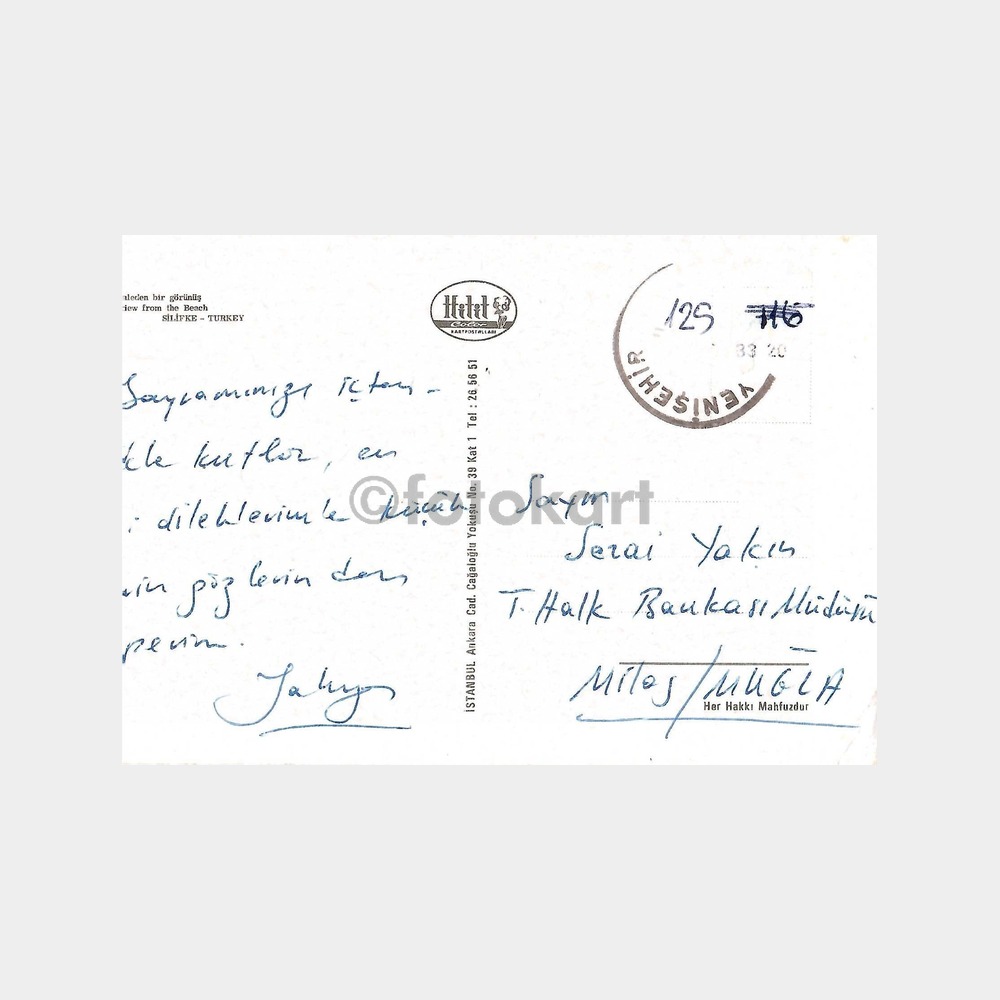 aleden bir görünüş
iew from the Beach
SİLİFKE - TURKEY
Hitit
Color
KARTPOSTALLARI
125
716
83 20
YENİŞEHİR
Bayramınızı içten-
kle kutlar, en
i dileklerimle küçük
in gözlerinden
perim.
©fotokart
İSTANBUL Ankara Cad. Cağaloğlu Yokuşu No. 39 Kat 1 Tel : 26 56 51
Sayın
Sezai Yakın
T. Halk Bankası Müdürü
Milas/MUĞLA
Her Hakkı Mahfuzdur